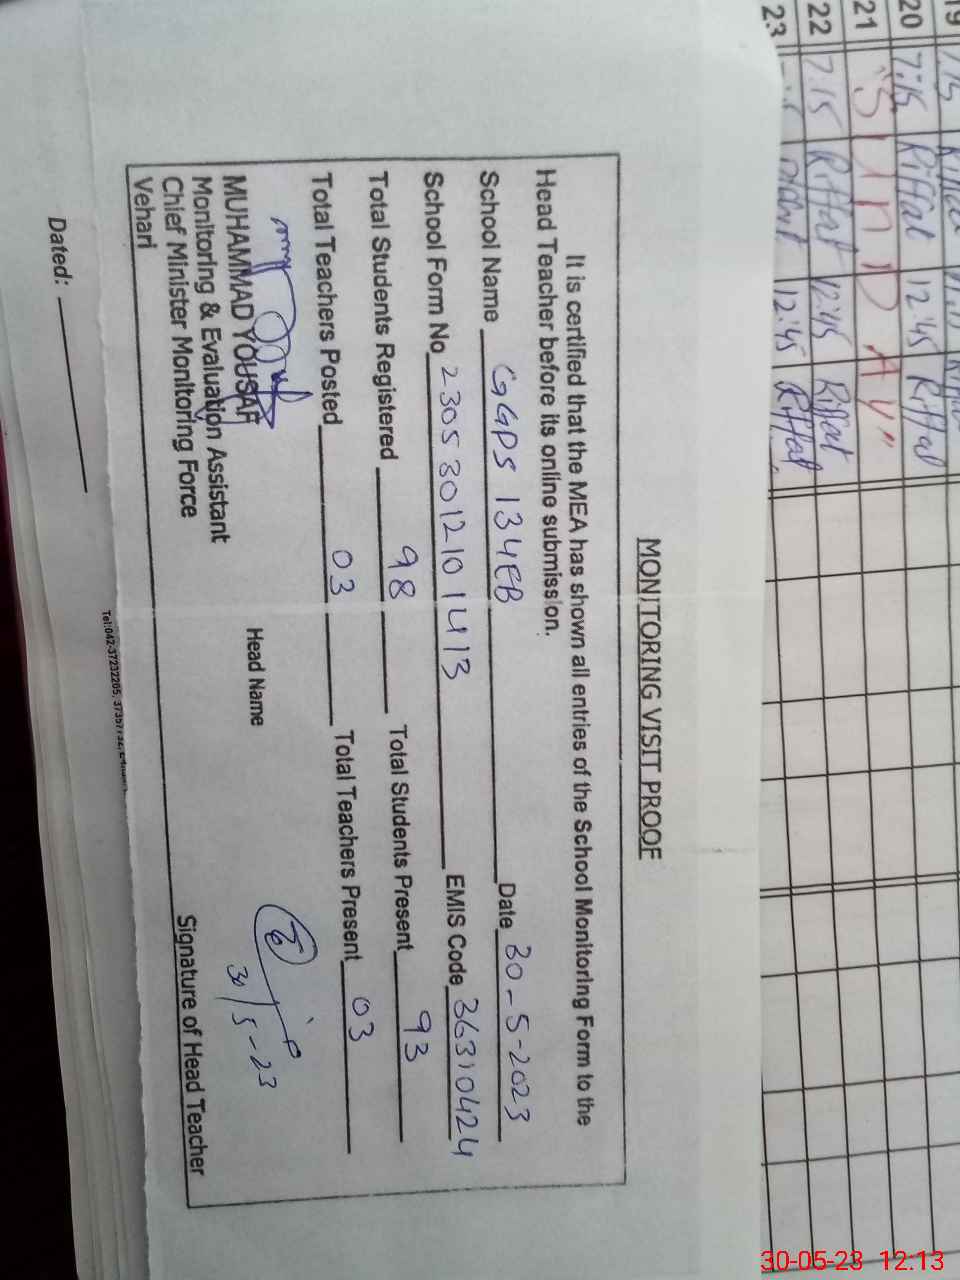 19 7:15
20 7:15 Riffat 12:45 Riffat
21 "SUnDAY"
22 7:15 Riffat 12:45 Riffat
23 12:45 Riffat
MONITORING VISIT PROOF
It is certified that the MEA has shown all entries of the School Monitoring Form to the
Head Teacher before its online submission.
School Name GGPS 134EB Date 30-5-2023
School Form No 2305301210 1413 EMIS Code 36310424
Total Students Registered 98 Total Students Present 93
Total Teachers Posted 03 Total Teachers Present 03
MUHAMMAD YOUSAF Head Name
Monitoring & Evaluation Assistant
Chief Minister Monitoring Force
Vehari
30/5-23
Signature of Head Teacher
Dated:
Tel:042-37232265,
30-05-23 12.13